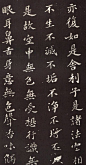 亦復如是舍利子是諸法空相
不生不滅不垢不淨不增不減
是故空中無色無受想行識無
眼耳鼻舌身意無色聲香味